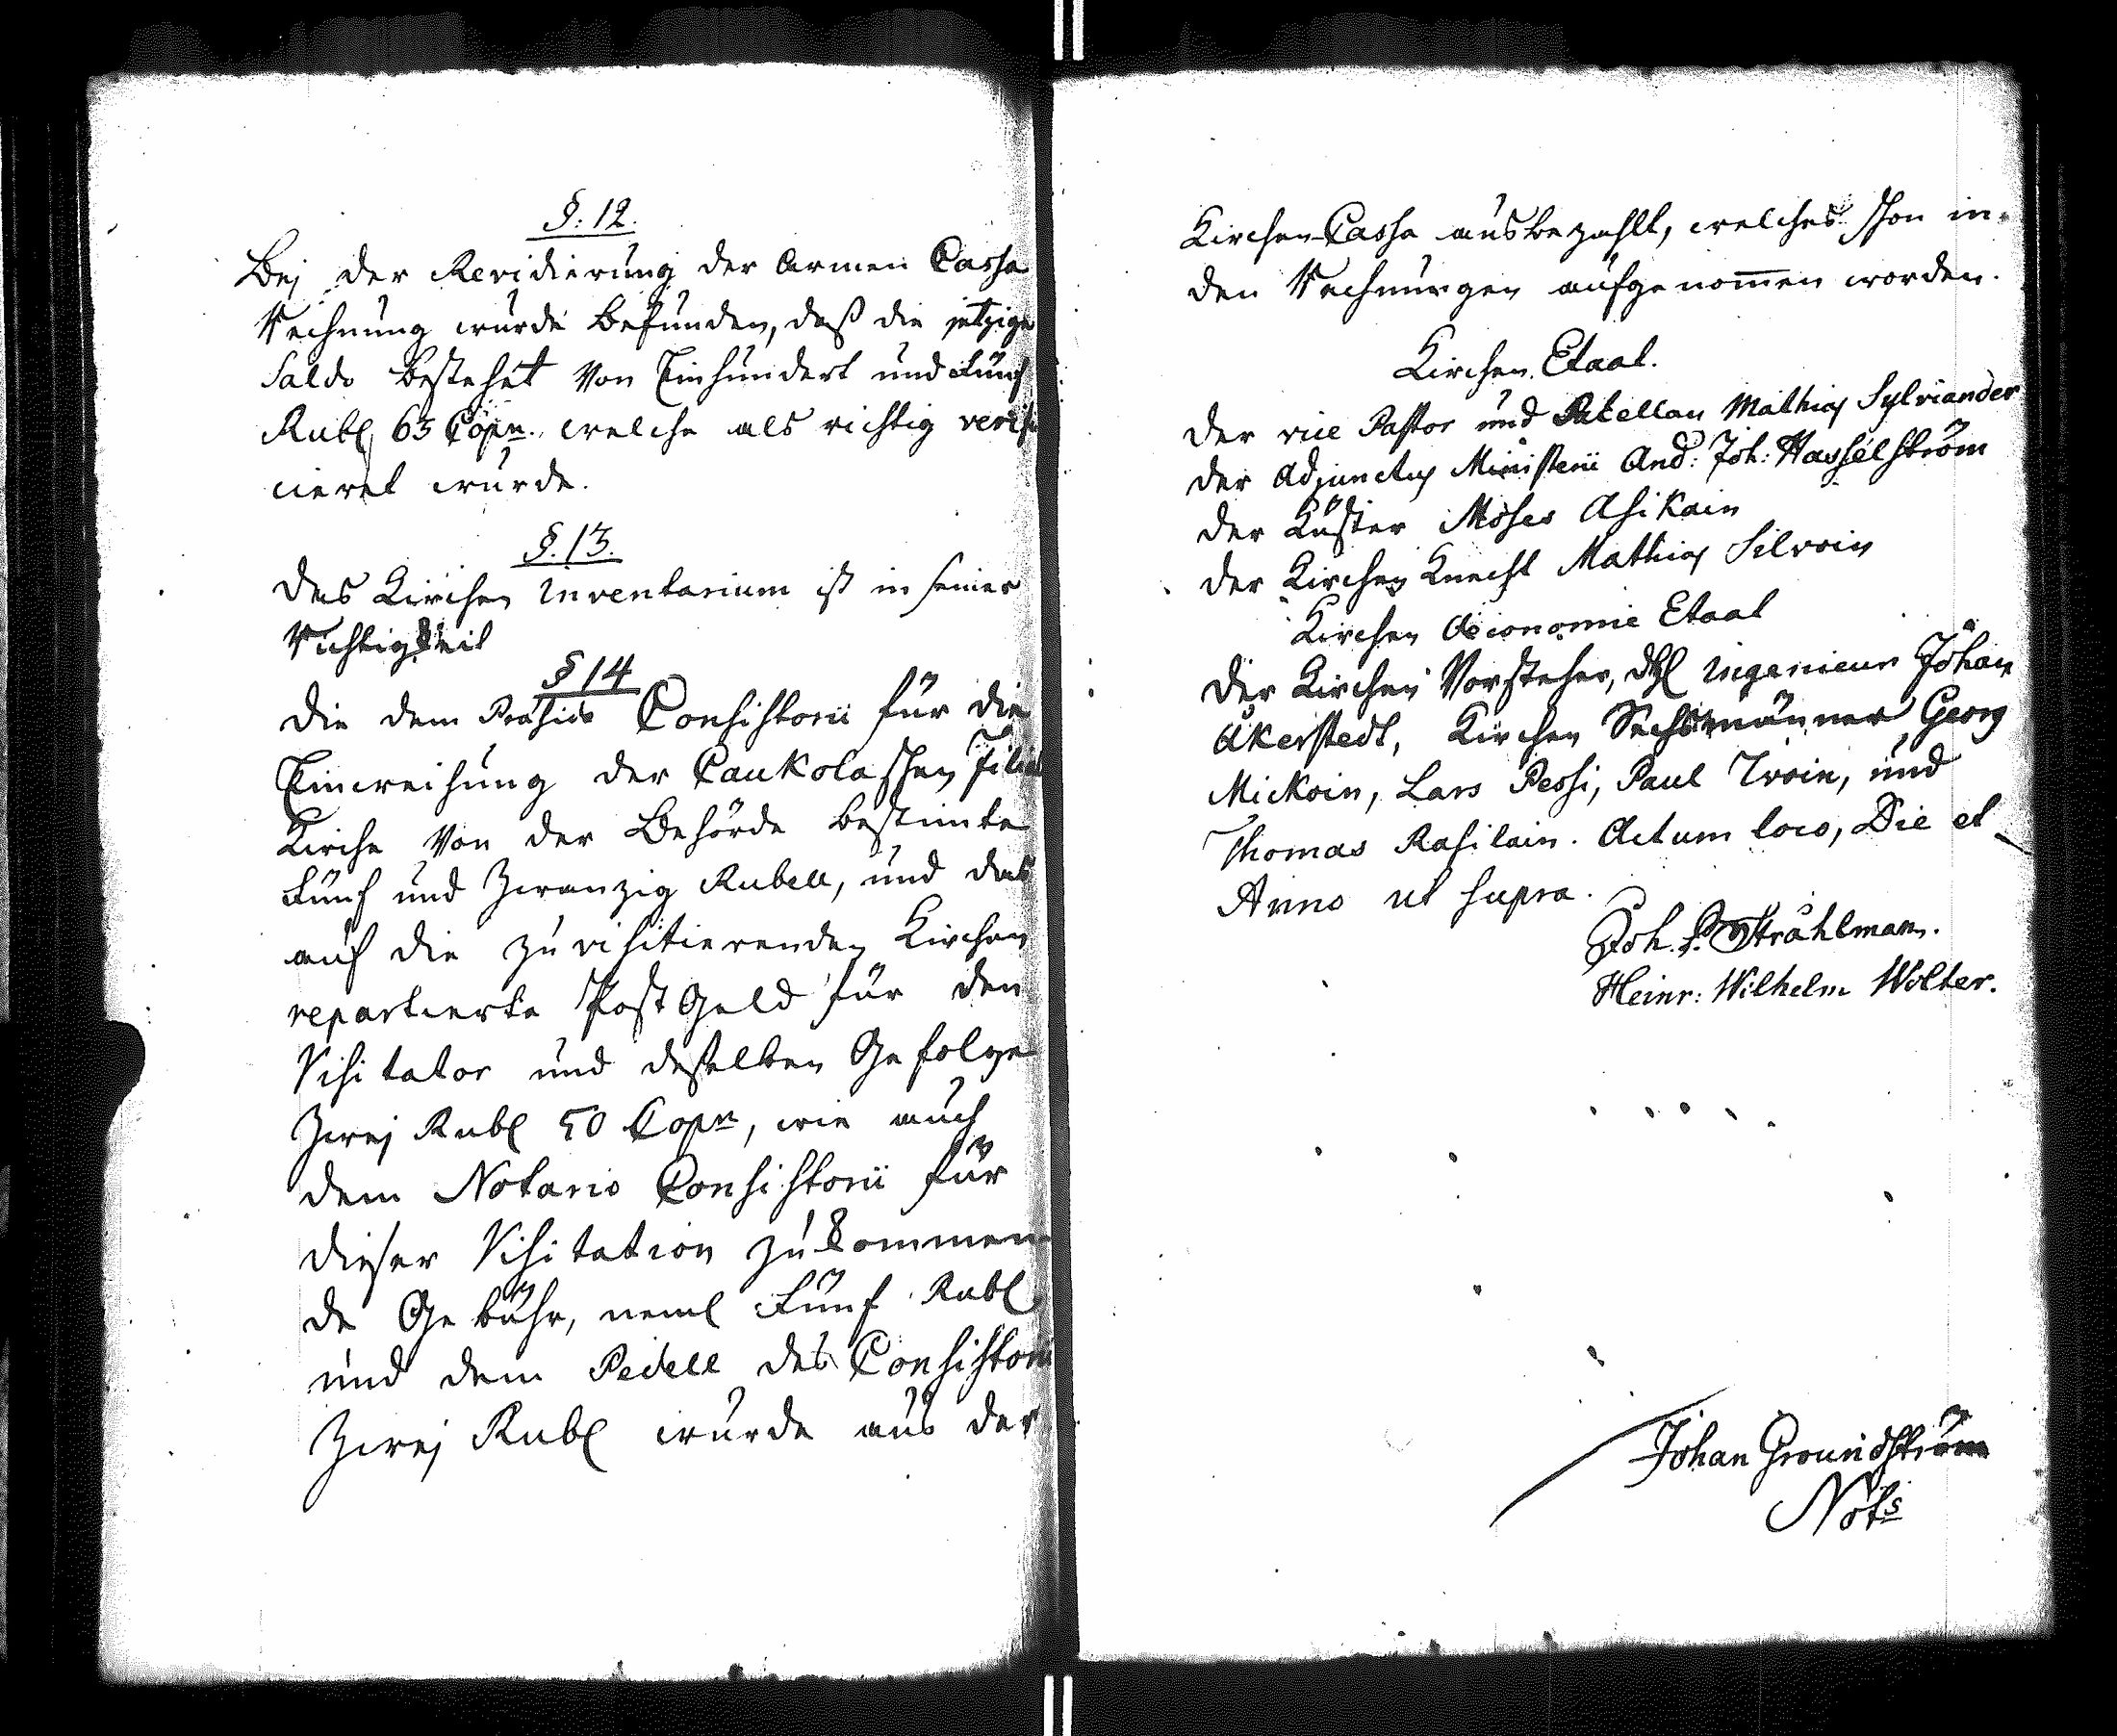 §: 12.
Bej der Revidierung der Armen Cassa
Rechnung wurde befunden, daß die jetzige
Saldo bestehet von Einhundert und Fünf
Rubl 63 Copn. welche als richtig verifi
cieret wurde.
§. 13.
Das Kirchen Inventarium ist in seiner
Richtigkeit
§ 14
Die dem Präsidi Consistorii für die
Einweihung der Caukolaschen Filial
Kirche von der Behörde bestimte
Fünf und Zwanzig Rubell, und das
auf die zu visitierenden Kirchen
repartierte Post Geld für den
Visitator und deßelben Gefolge
Zwej Rubl 50 Copn, wie auch
dem Notario Consistorii für
dieser Visitation zukommen
de Gebühr, neml Fünf Rubl
und dem Pedell des Consistorii
Zwej Rubl wurde aus der
Kirchen-Cassa ausbezahlt, welches schon in
den Rechnungen aufgenommen worden.
Kirchen Etaat.
Der vice Pastor und Capellan Mathias Sylviander
Der Adjunctus Ministerii And: Joh: Hasselström
Der Küster Moses Asikain
Der Kirchen Knecht Mathias Silvoin
Kirchen Oeconomie Etaat
Der Kirchen Vorsteher, Ingenieur Johan
Åkerstedt, Kirchen Sechsmänner Georg
Mickoin, Lars Pessi, Paul Ivoin, und
Thomas Rasilain. Actum loco, Die et
Anno ut supra.
Joh. Stråhlman.
Heinr: Wilhelm Wolter.
Johan Grundström
Nots